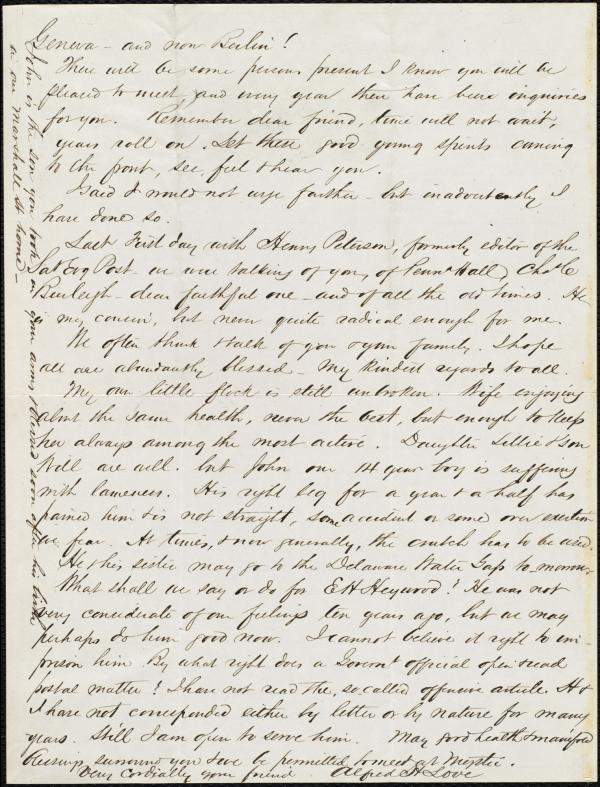 Geneva – and now Berlin!
There will be some persons present I know you will be
pleased to meet and every year there have been inquiries
for you. Remember dear friend, time will not wait,
years roll on. Let these good young spirits coming
to the front, see, feel & hear you.
I said I would not urge further – but inadvertently I
have done so.
Last First day with Henry Peterson, formerly editor of the
Sat Evg Post – we were talking of you, of Penna Hall, Chas C
Burleigh – dear faithful one – and of all the old times. He
is my cousin, but never quite radical enough for me.
We often think & talk of you & your family. I hope
all are abundantly blessed – my kindest regards to all.
My own little flock is still unbroken. Wife enjoying
about the same health, never the best, but enough to keep
her always among the most active. Daughter Lillie & son
Will are well. but John our 14 year boy is suffering
with lameness. His right leg for a year & a half has
pained him & is not straight, some accident or some over exertion
we fear. At times, & now generally, the crutch has to be used.
He & his sister may go to the Delaware Water Gap to morrow.
What shall we say or do for E H Heywood? He was not
very considerate of our feelings ten years ago, but we may
perhaps do him good now. I cannot believe it right to im-
prison him. By what right does a Governt official open & read
postal matter? I have not read the, so called offensive article. H &
I have not corresponded either by letter or by nature for many
years. Still I am open to serve him. May good health & manifold
blessings surround you & we be permitted to meet at Mystic.
Very cordially your friend Alfred H Love
John is the son you took in your arms & blessed soon after his birth
in our Marshall St home –